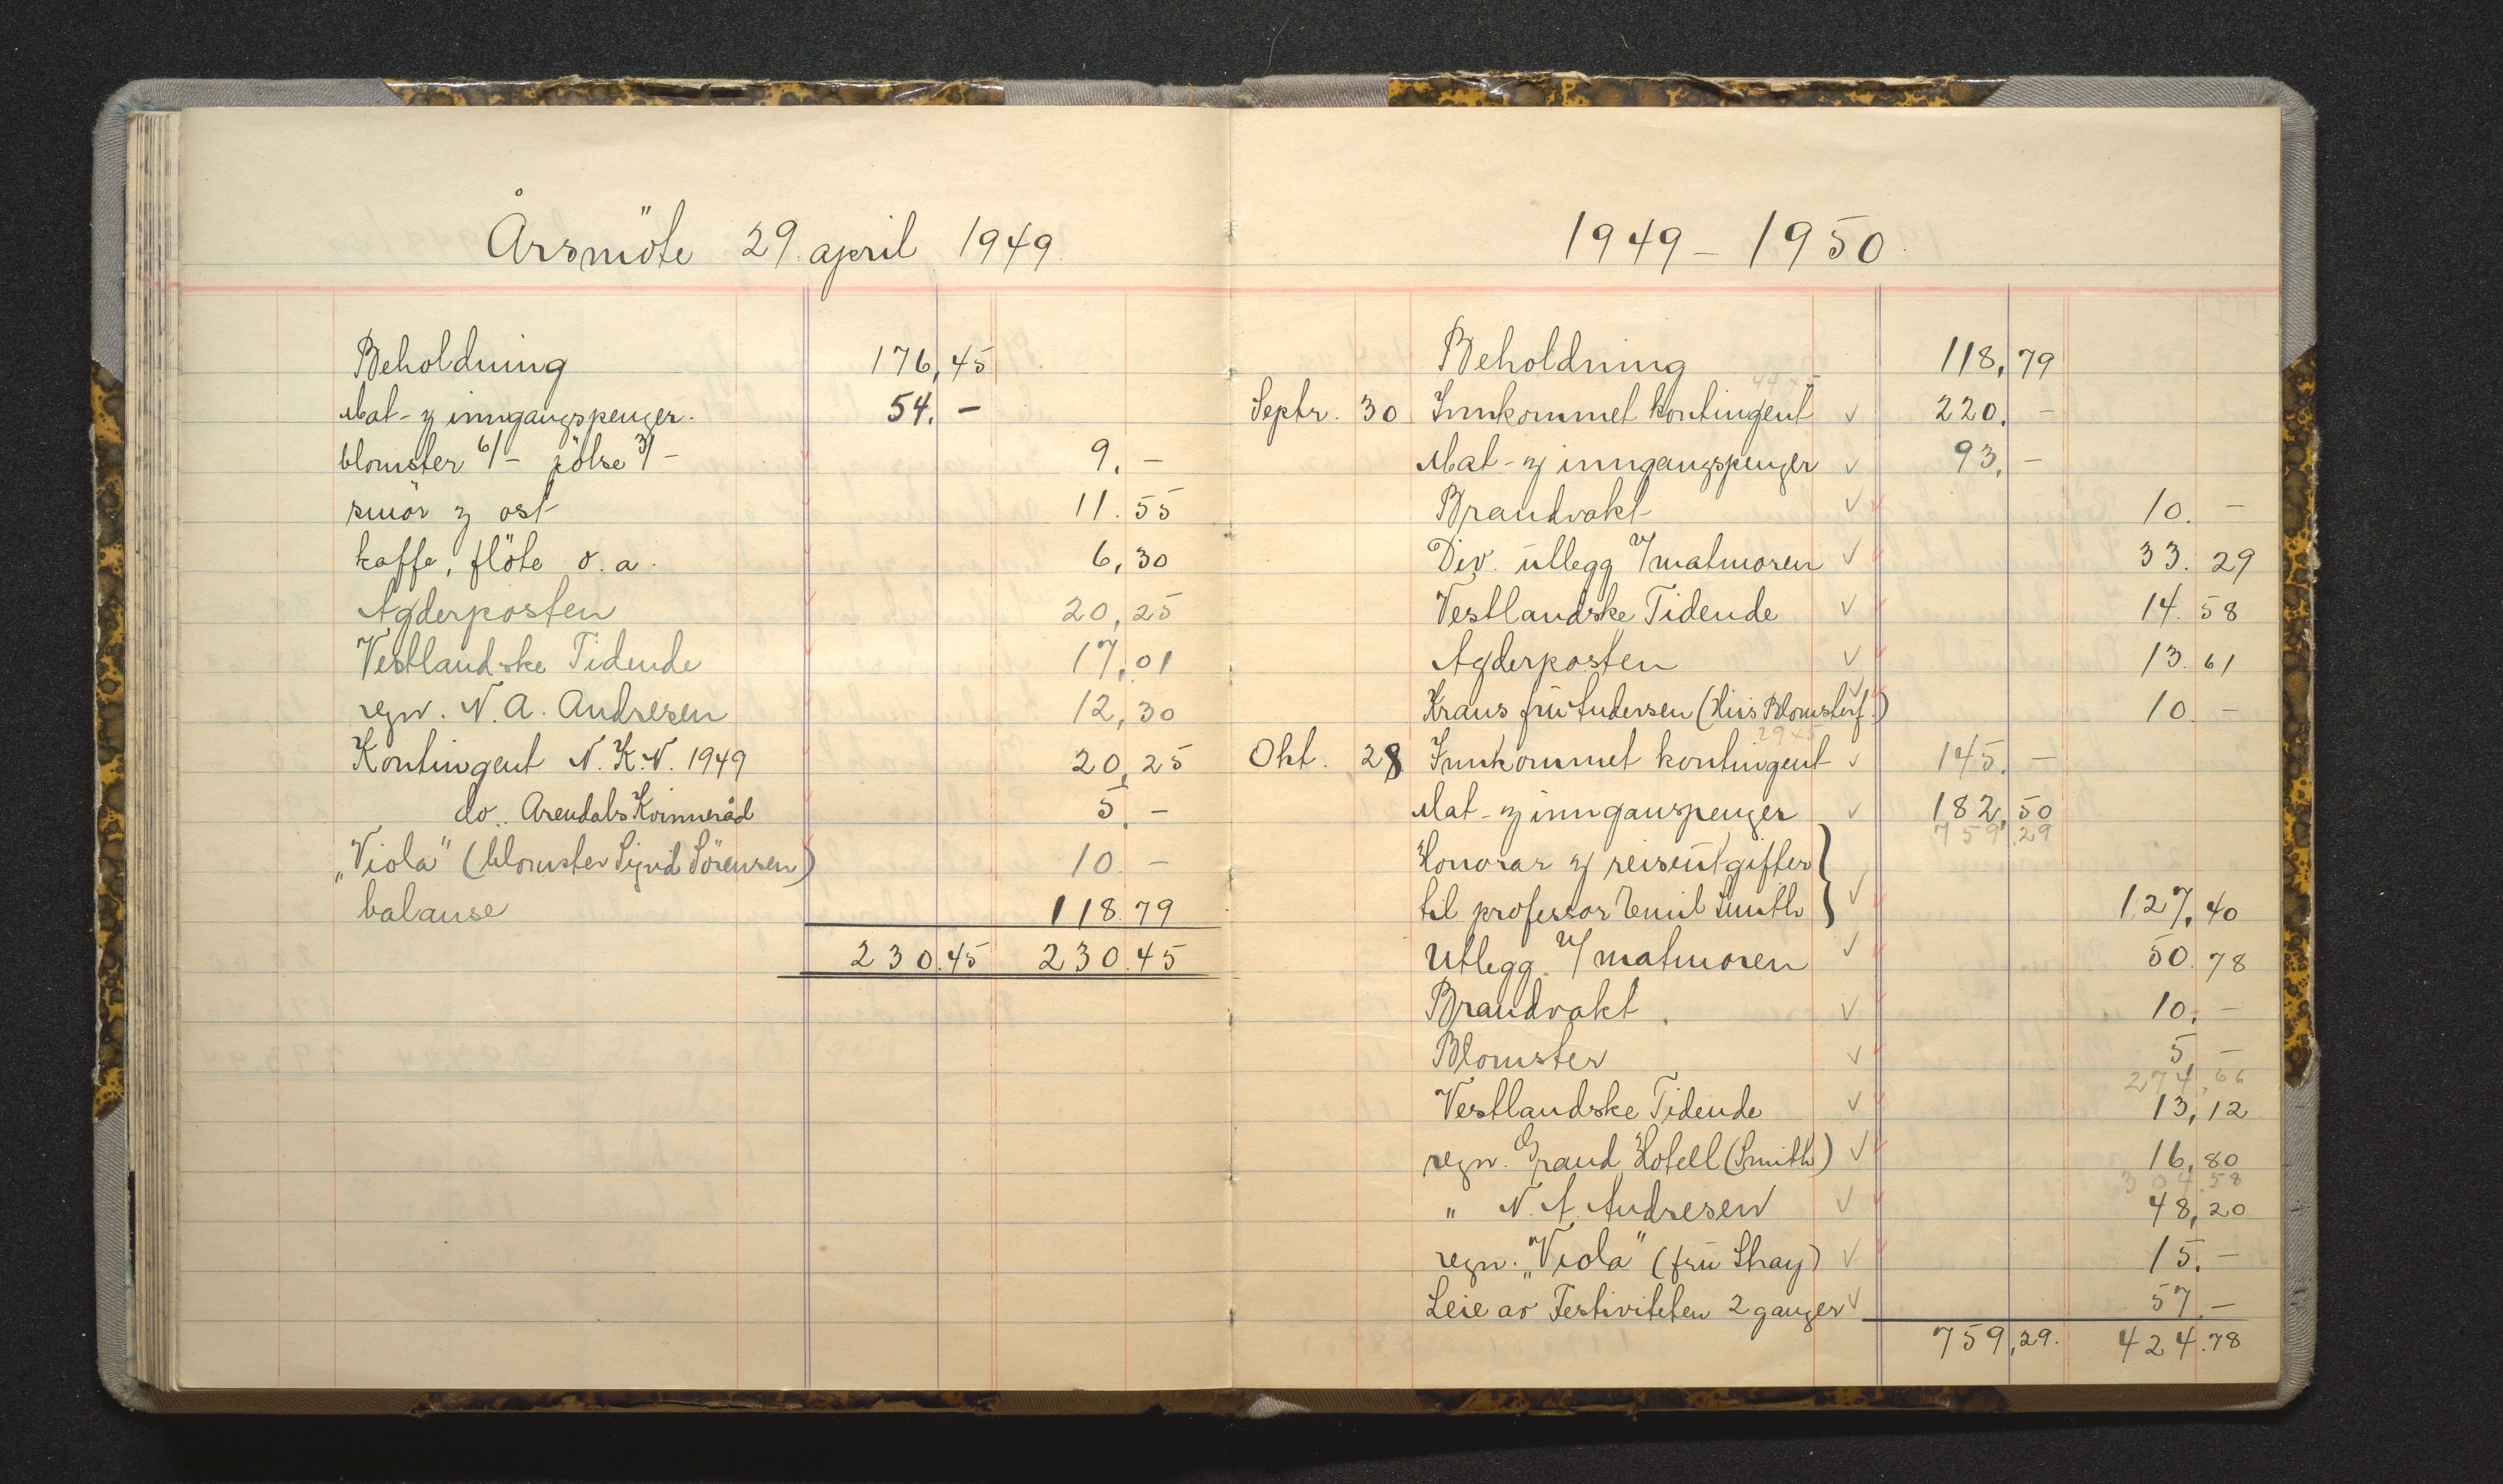 Årsmöte 29. april 1949.
Beholdning 176,45
Mat- og inngangspenger. 54. -
blomster 6/- pölse 3/- 9, -
smör og ost 11.55
kaffe, flöte o.a. 6,30
Agderposten 20,25
Vestlandske Tidende 17,01
regn. N.A. Andresen 12,30
Kontingent N.K.N. 1949 20,25
do. Arendals Kvinneråd 5, -
"Viola" (blomster Sigrid Sörensen) 10. -
balanse 118.79
230.45 230.45
1949 - 1950.
Beholdning 118,79
44 x 5
Septr. 30 Innkommet kontingent ✓ 220. -
Mat- og inngangspenger ✓ 93, -
Brandvakt ✓ 10. -
Div. utlegg v/matmoren ✓ 33. 29
Vestlandske Tidende ✓ 14. 58
Agderposten ✓ 13. 61
Krans fru Andersen (His Blomsterf.) ✓ 10. -
29 x 5
Okt. 28 Innkommet kontingent ✓ 145. -
Mat- og inngangspenger ✓ 182,50
759,29
Honorar og reiseutgifter }
til professor Emil Smith } ✓ 127,40
Utlegg v/matmoren ✓ 50.78
Brandvakt ✓ 10, -
Blomster ✓ 5, -
274,66
Vestlandske Tidende ✓ 13,12
regn. Grand Hotell (Smith) ✓ 16,80
304.58
" N.A. Andresen ✓ 48,20
regn. "Viola" (fru Shay) ✓ 15. -
Leie av Festiviteten 2 ganger ✓ 57. -
759,29. 424.78